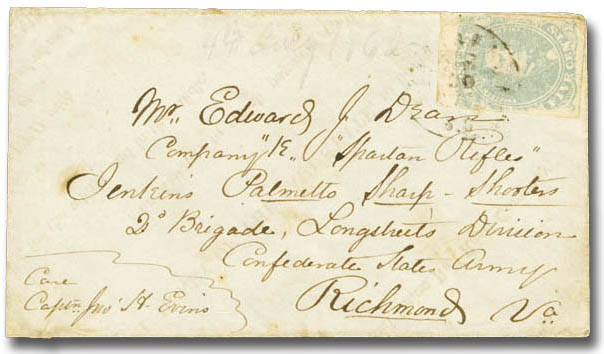 4th July 1862
Mr. Edward J. Dean
Company "K" "Spartan Rifles"
Jenkins Palmetto Sharp-Shooters
2d Brigade, Longstreets Division
Confederate States Army
Richmond Va.
Care
Captn. Jno. H. Evins